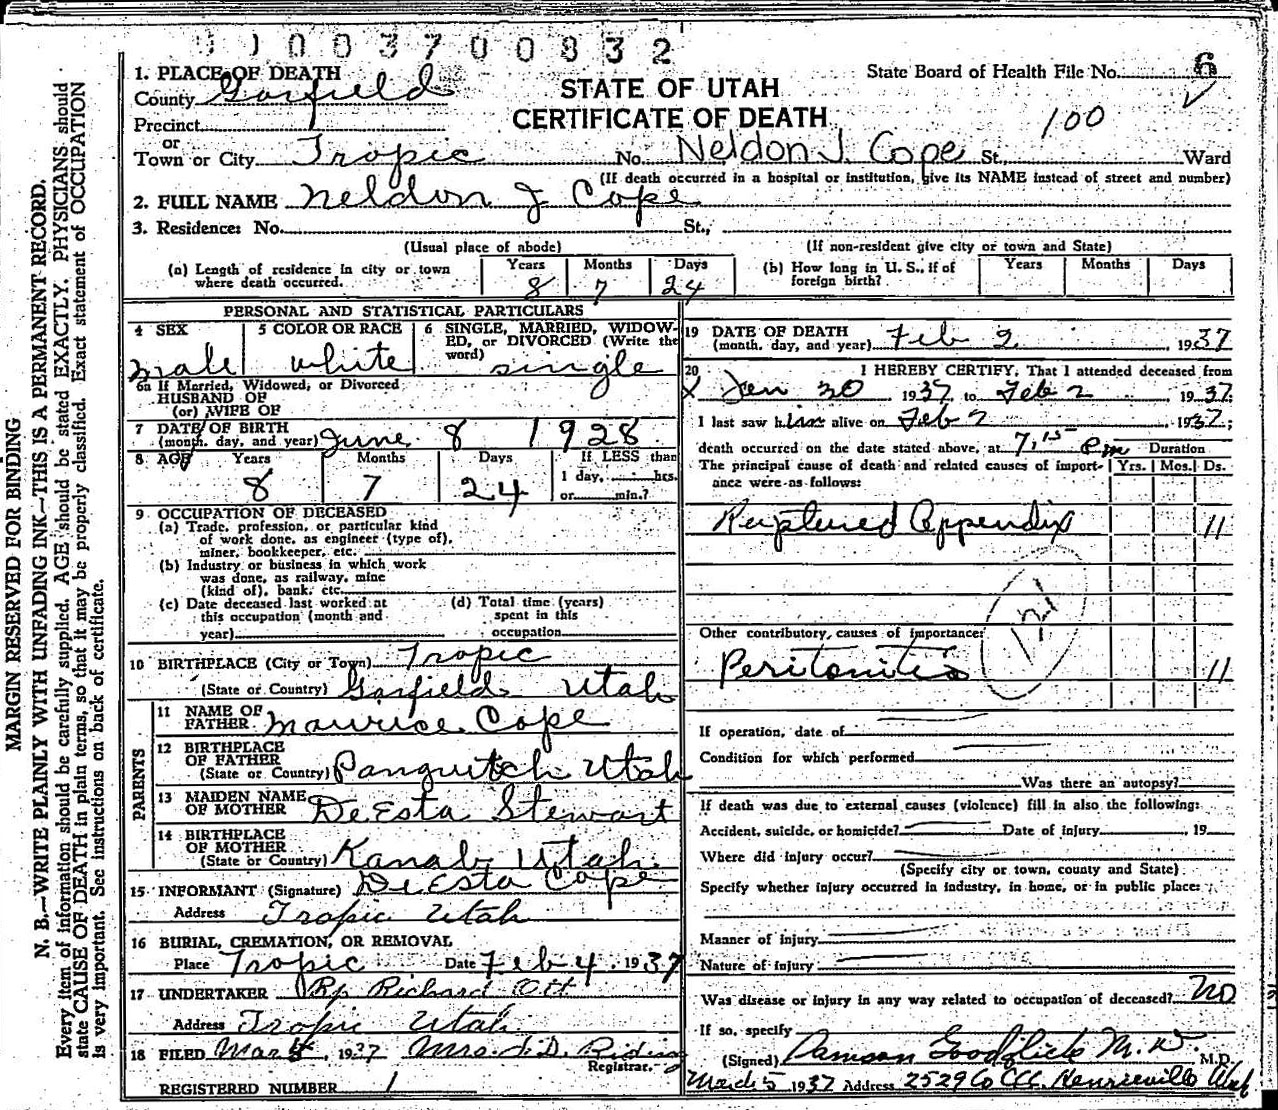 003700832
1. PLACE OF DEATH
County Garfield
Precinct
or
Town or City Tropic No. Neldon J. Cope St. Ward
STATE OF UTAH
CERTIFICATE OF DEATH
State Board of Health File No. 6
100
(If death occurred in a hospital or institution, give its NAME instead of street and number)
2. FULL NAME Neldon J Cope
3. Residence: No. St.,
(Usual place of abode) (If non-resident give city or town and State)
(a) Length of residence in city or town where death occurred. Years 8 Months 7 Days 24
(b) How long in U. S., if of foreign birth? Years Months Days
PERSONAL AND STATISTICAL PARTICULARS
4 SEX male
5 COLOR OR RACE white
6 SINGLE, MARRIED, WIDOWED, or DIVORCED (Write the word) single
6a If Married, Widowed, or Divorced
HUSBAND OF
(or) WIFE OF
7 DATE OF BIRTH
(month, day, and year) June 8 1928
8 AGE Years 8 Months 7 Days 24
If LESS than
1 day, hrs.
or min.?
9 OCCUPATION OF DECEASED
(a) Trade, profession, or particular kind
of work done, as engineer (type of),
miner, bookkeeper, etc.
(b) Industry or business in which work
was done, as railway, mine
(kind of), bank, etc.
(c) Date deceased last worked at
this occupation (month and
year)
(d) Total time (years)
spent in this
occupation
10 BIRTHPLACE (City or Town) Tropic
(State or Country) Garfield Utah
PARENTS
11 NAME OF
FATHER Maurice Cope
12 BIRTHPLACE
OF FATHER
(State or Country) Panguitch Utah
13 MAIDEN NAME
OF MOTHER DeEsta Stewart
14 BIRTHPLACE
OF MOTHER
(State or Country) Kanab Utah
15 INFORMANT (Signature) DeEsta Cope
Address Tropic Utah
16 BURIAL, CREMATION, OR REMOVAL
Place Tropic Date Feb 4, 1937
17 UNDERTAKER Richard Ott
Address Tropic Utah
18 FILED Mar 5, 1937 Mrs.
Registrar.
REGISTERED NUMBER 1
19 DATE OF DEATH
(month, day, and year) Feb 2 1937
20 I HEREBY CERTIFY, That I attended deceased from
x Jan 30 1937 to Feb 2 1937
I last saw him alive on Feb 2, 1937;
death occurred on the date stated above, at 7:15 P m Duration
The principal cause of death and related causes of importance were as follows: Yrs. Mos. Ds.
Ruptured Appendix 11
121
Other contributory causes of importance:
Peritonitis 11
If operation, date of
Condition for which performed
Was there an autopsy?
If death was due to external causes (violence) fill in also the following:
Accident, suicide, or homicide? Date of injury, 19
Where did injury occur?
(Specify city or town, county and State)
Specify whether injury occurred in industry, in home, or in public place:
Manner of injury
Nature of injury
Was disease or injury in any way related to occupation of deceased? No
If so, specify
(Signed) M.D. M.D.
March 5 1937 Address 2529 Co CCC. Henrieville Utah
MARGIN RESERVED FOR BINDING
N. B.—WRITE PLAINLY WITH UNFADING INK—THIS IS A PERMANENT RECORD.
Every item of information should be carefully supplied. AGE should be stated EXACTLY. PHYSICIANS should
state CAUSE OF DEATH in plain terms, so that it may be properly classified. Exact statement of OCCUPATION
is very important. See instructions on back of certificate.